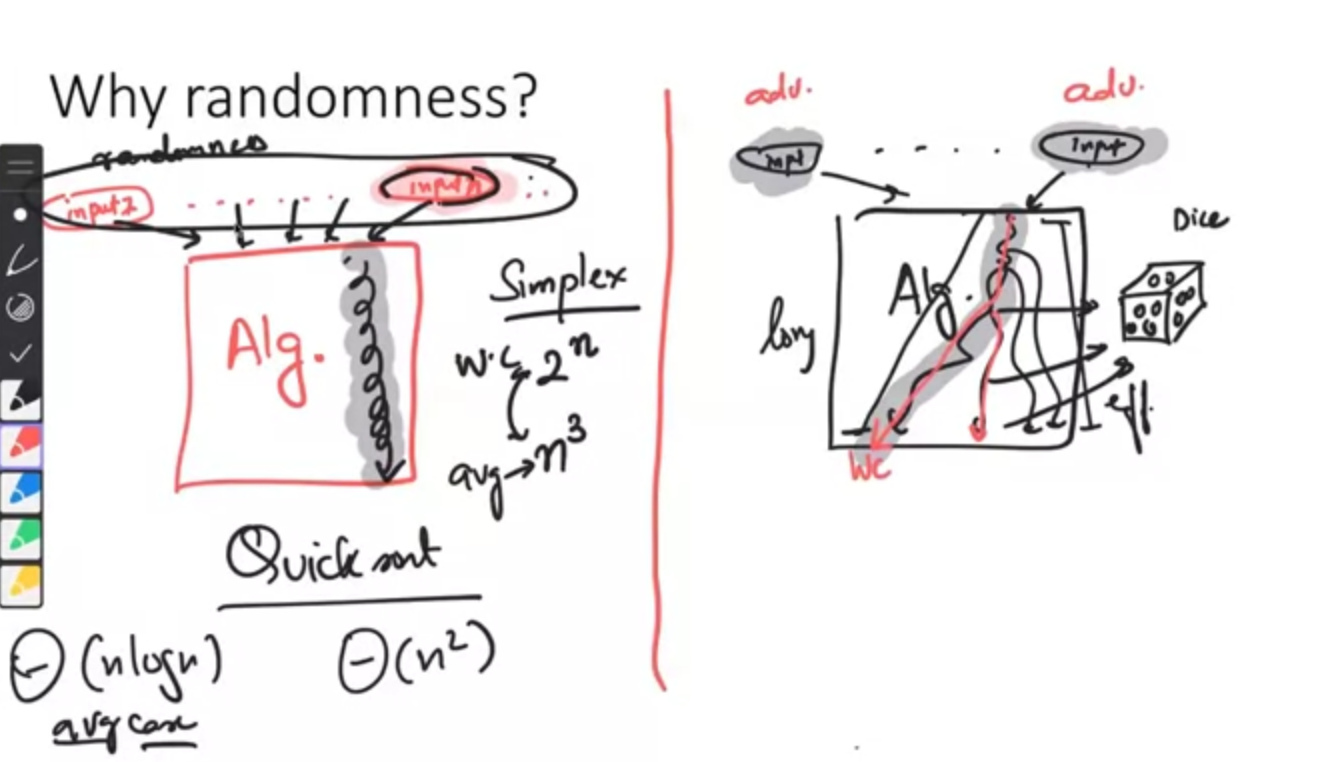 Why randomness?
randomness
input 1
input n
Alg.
Simplex
w.c 2^n
avg → n^3
Quick sort
Θ(nlogn)
Θ(n^2)
avg case
adv.
adv.
inpt
Input
Alg.
long
Dice
eff.
WC